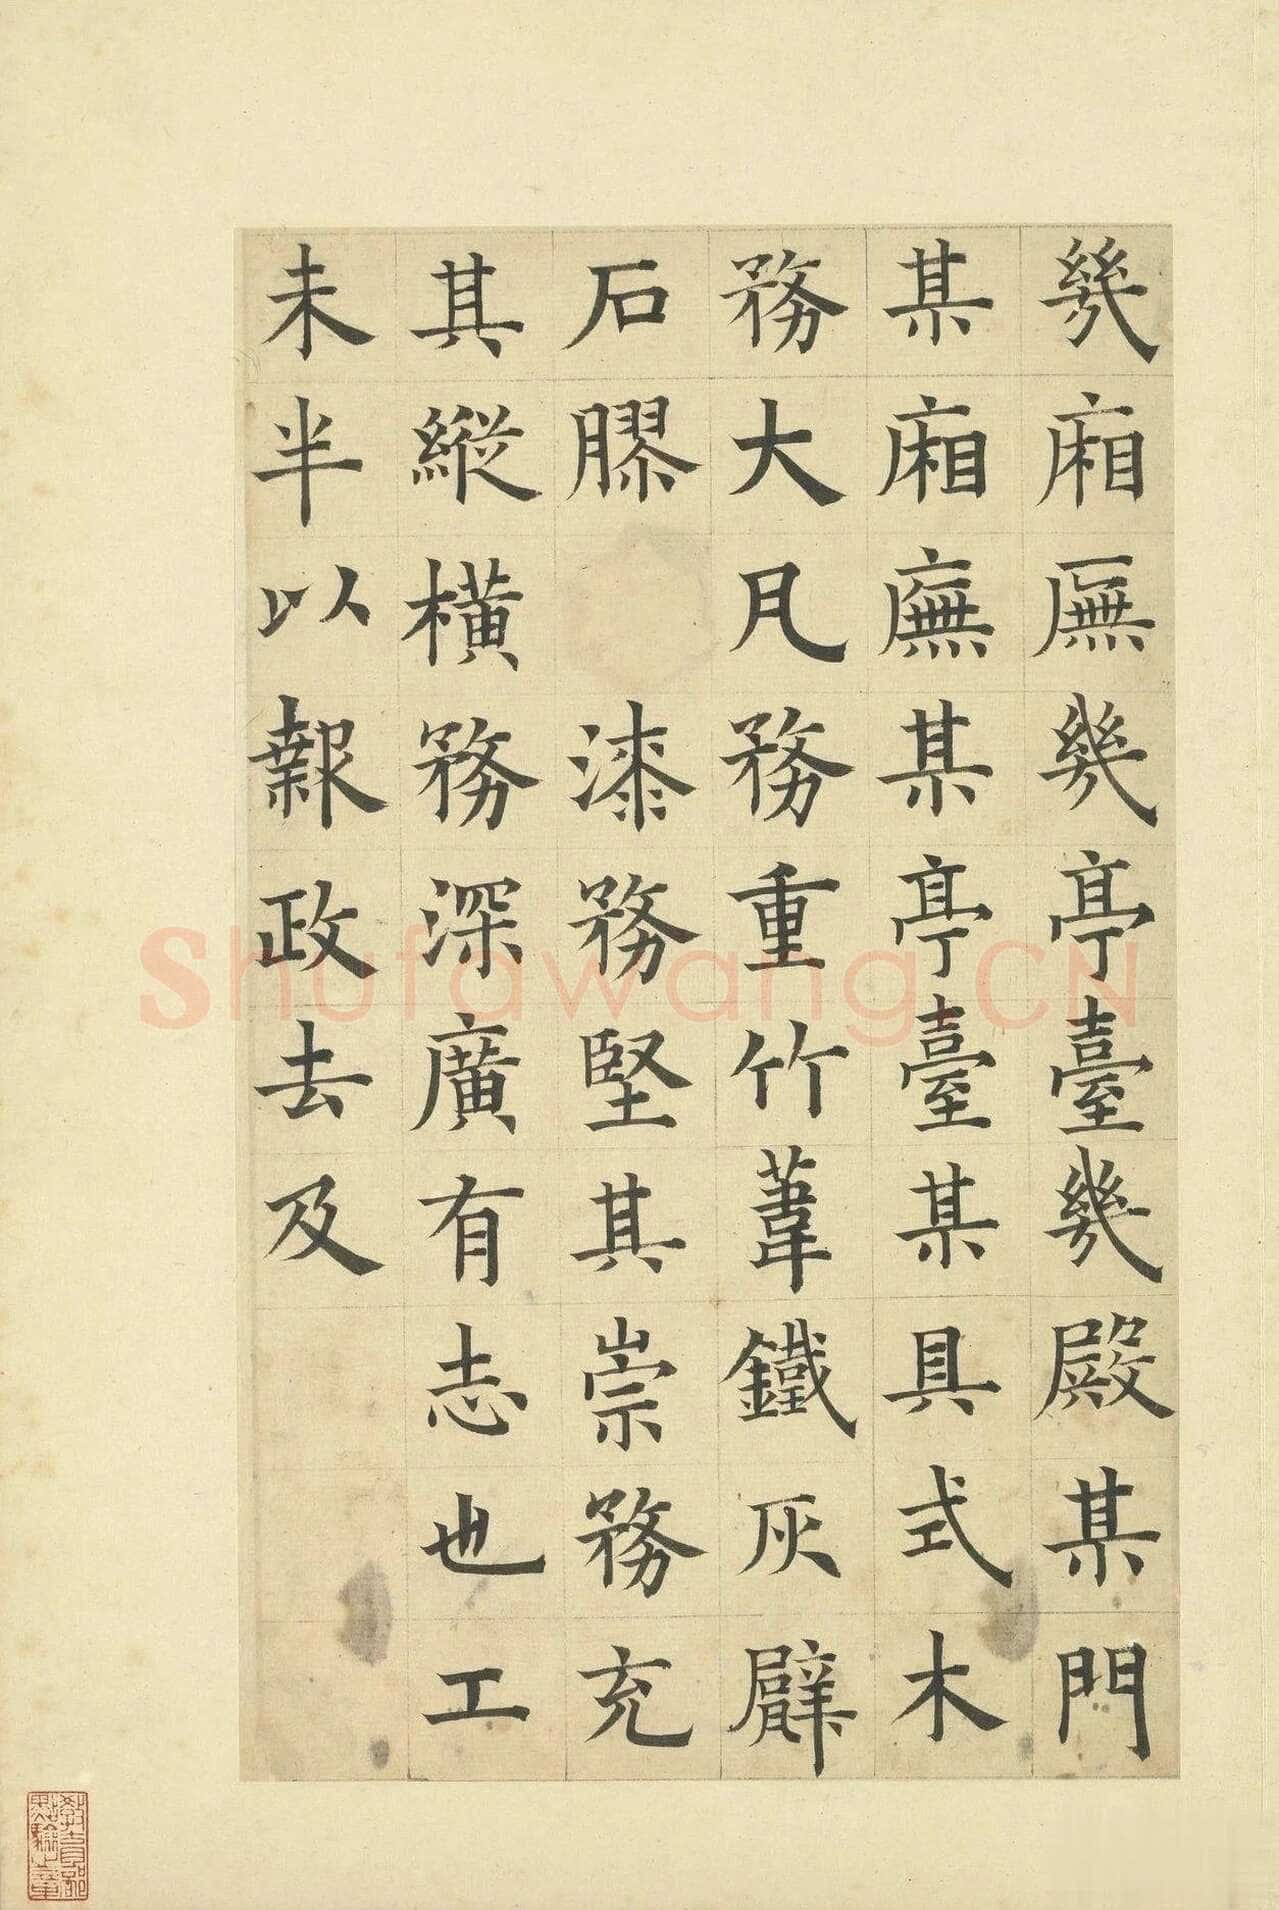 幾廂廡幾亭臺幾殿某門
某廂廡某亭臺某具式木
務大凡務重竹葦鐵灰甓
石膠漆務堅其崇務充
其縱橫務深廣有志也工
未半以報政去及
shufawang.CN
教育部點驗之章